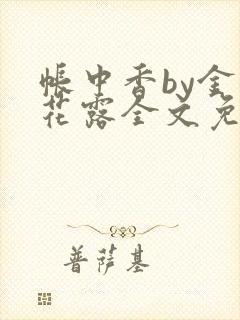 帐中香by金
花露全文免
普萨基